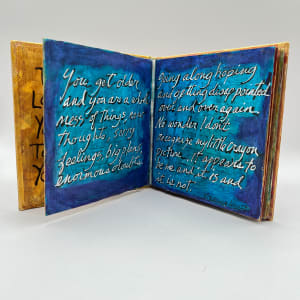 You get older
and you are a whole
mess of things, new
thoughts, sorry
feelings, big plans
enormous doubts
going along hoping
and getting disappointed
over and over again
No wonder I don't
recognize my little crayon
picture. it appears to
be me and it is and
it is not.